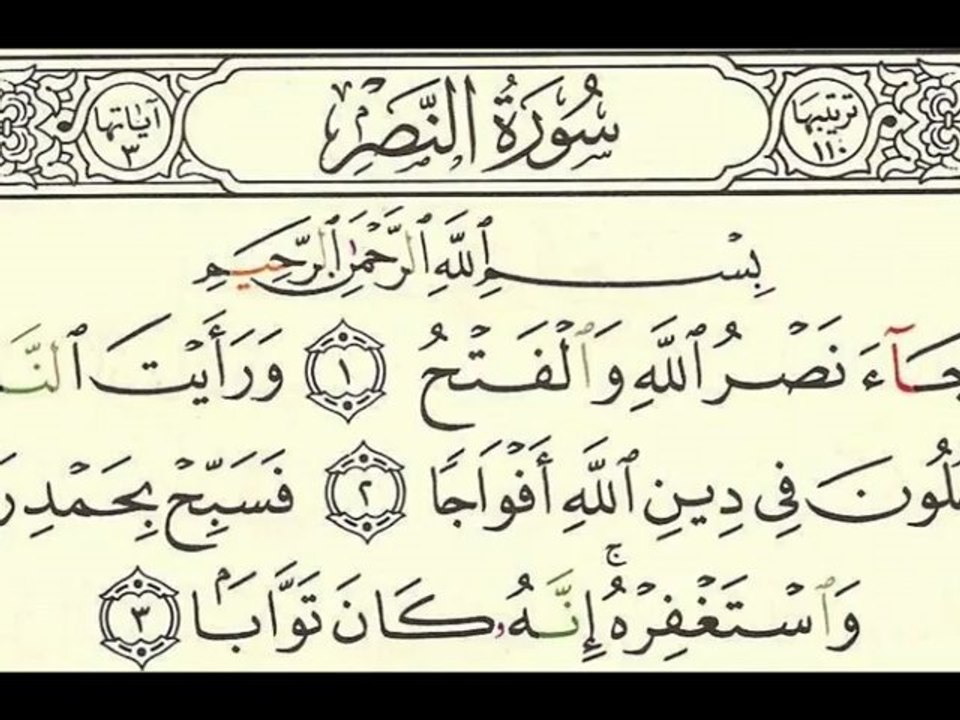 ترتيبها
١١٠
سُورَةُ النَّصْرِ
آياتها
٣
بِسْمِ ٱللَّهِ ٱلرَّحْمَٰنِ ٱلرَّحِيمِ
جَآءَ نَصْرُ ٱللَّهِ وَٱلْفَتْحُ ١ وَرَأَيْتَ ٱلنَّ
لُونَ فِي دِينِ ٱللَّهِ أَفْوَاجًا ٢ فَسَبِّحْ بِحَمْدِ رَ
وَٱسْتَغْفِرْهُ ۚ إِنَّهُۥ كَانَ تَوَّابًۢا ٣